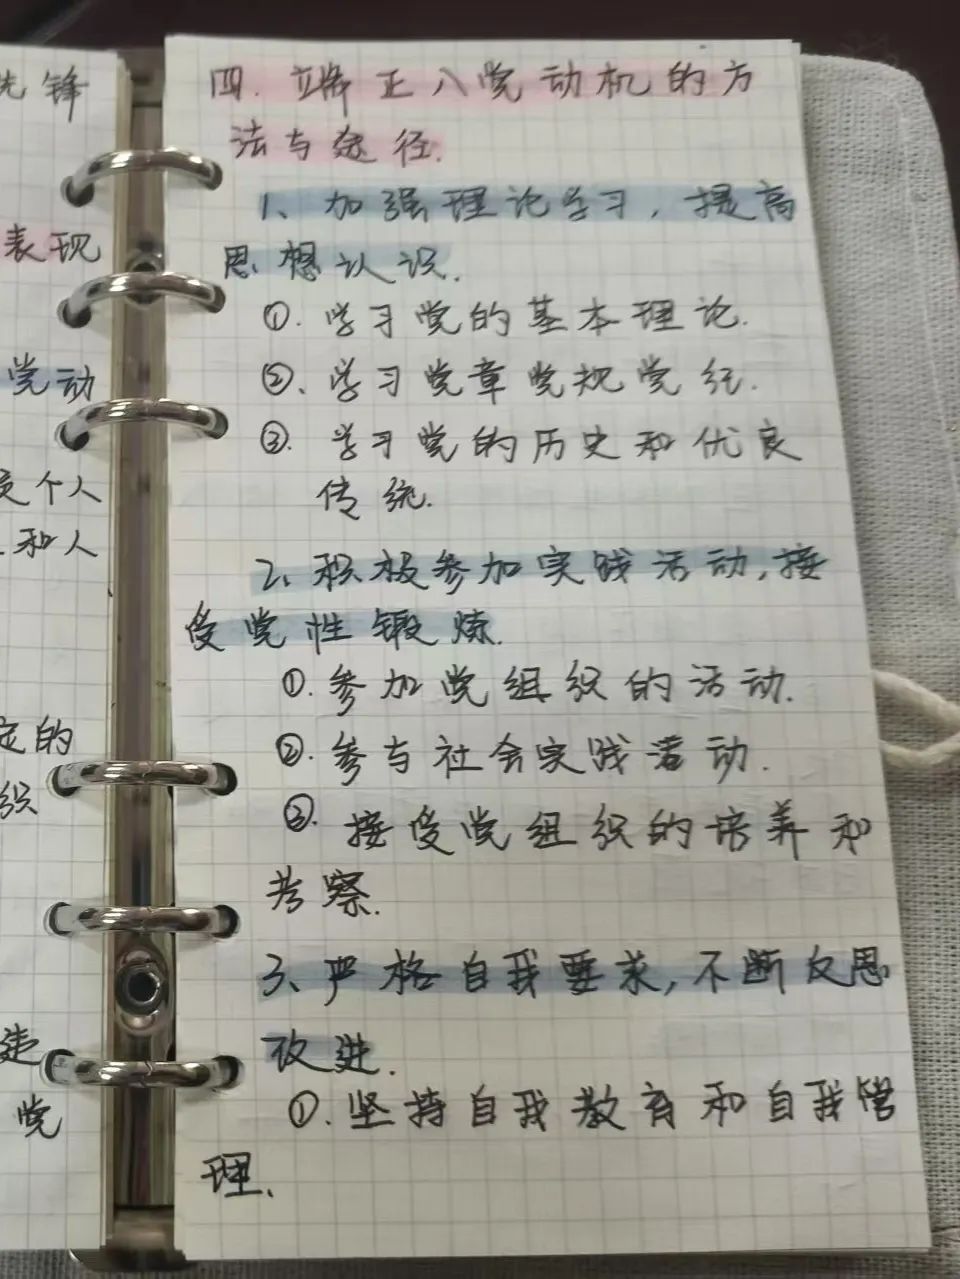 先锋
表现
党动
个人
和人
定的
织
党
四. 端正入党动机的方
法与途径.
1、加强理论学习，提高
思想认识.
①. 学习党的基本理论.
②. 学习党章党规党纪.
③. 学习党的历史和优良
传统.
2、积极参加实践活动，接
受党性锻炼.
①. 参加党组织的活动.
②. 参与社会实践活动.
③. 接受党组织的培养和
考察.
3、严格自我要求，不断反思
改进.
①. 坚持自我教育和自我管
理.